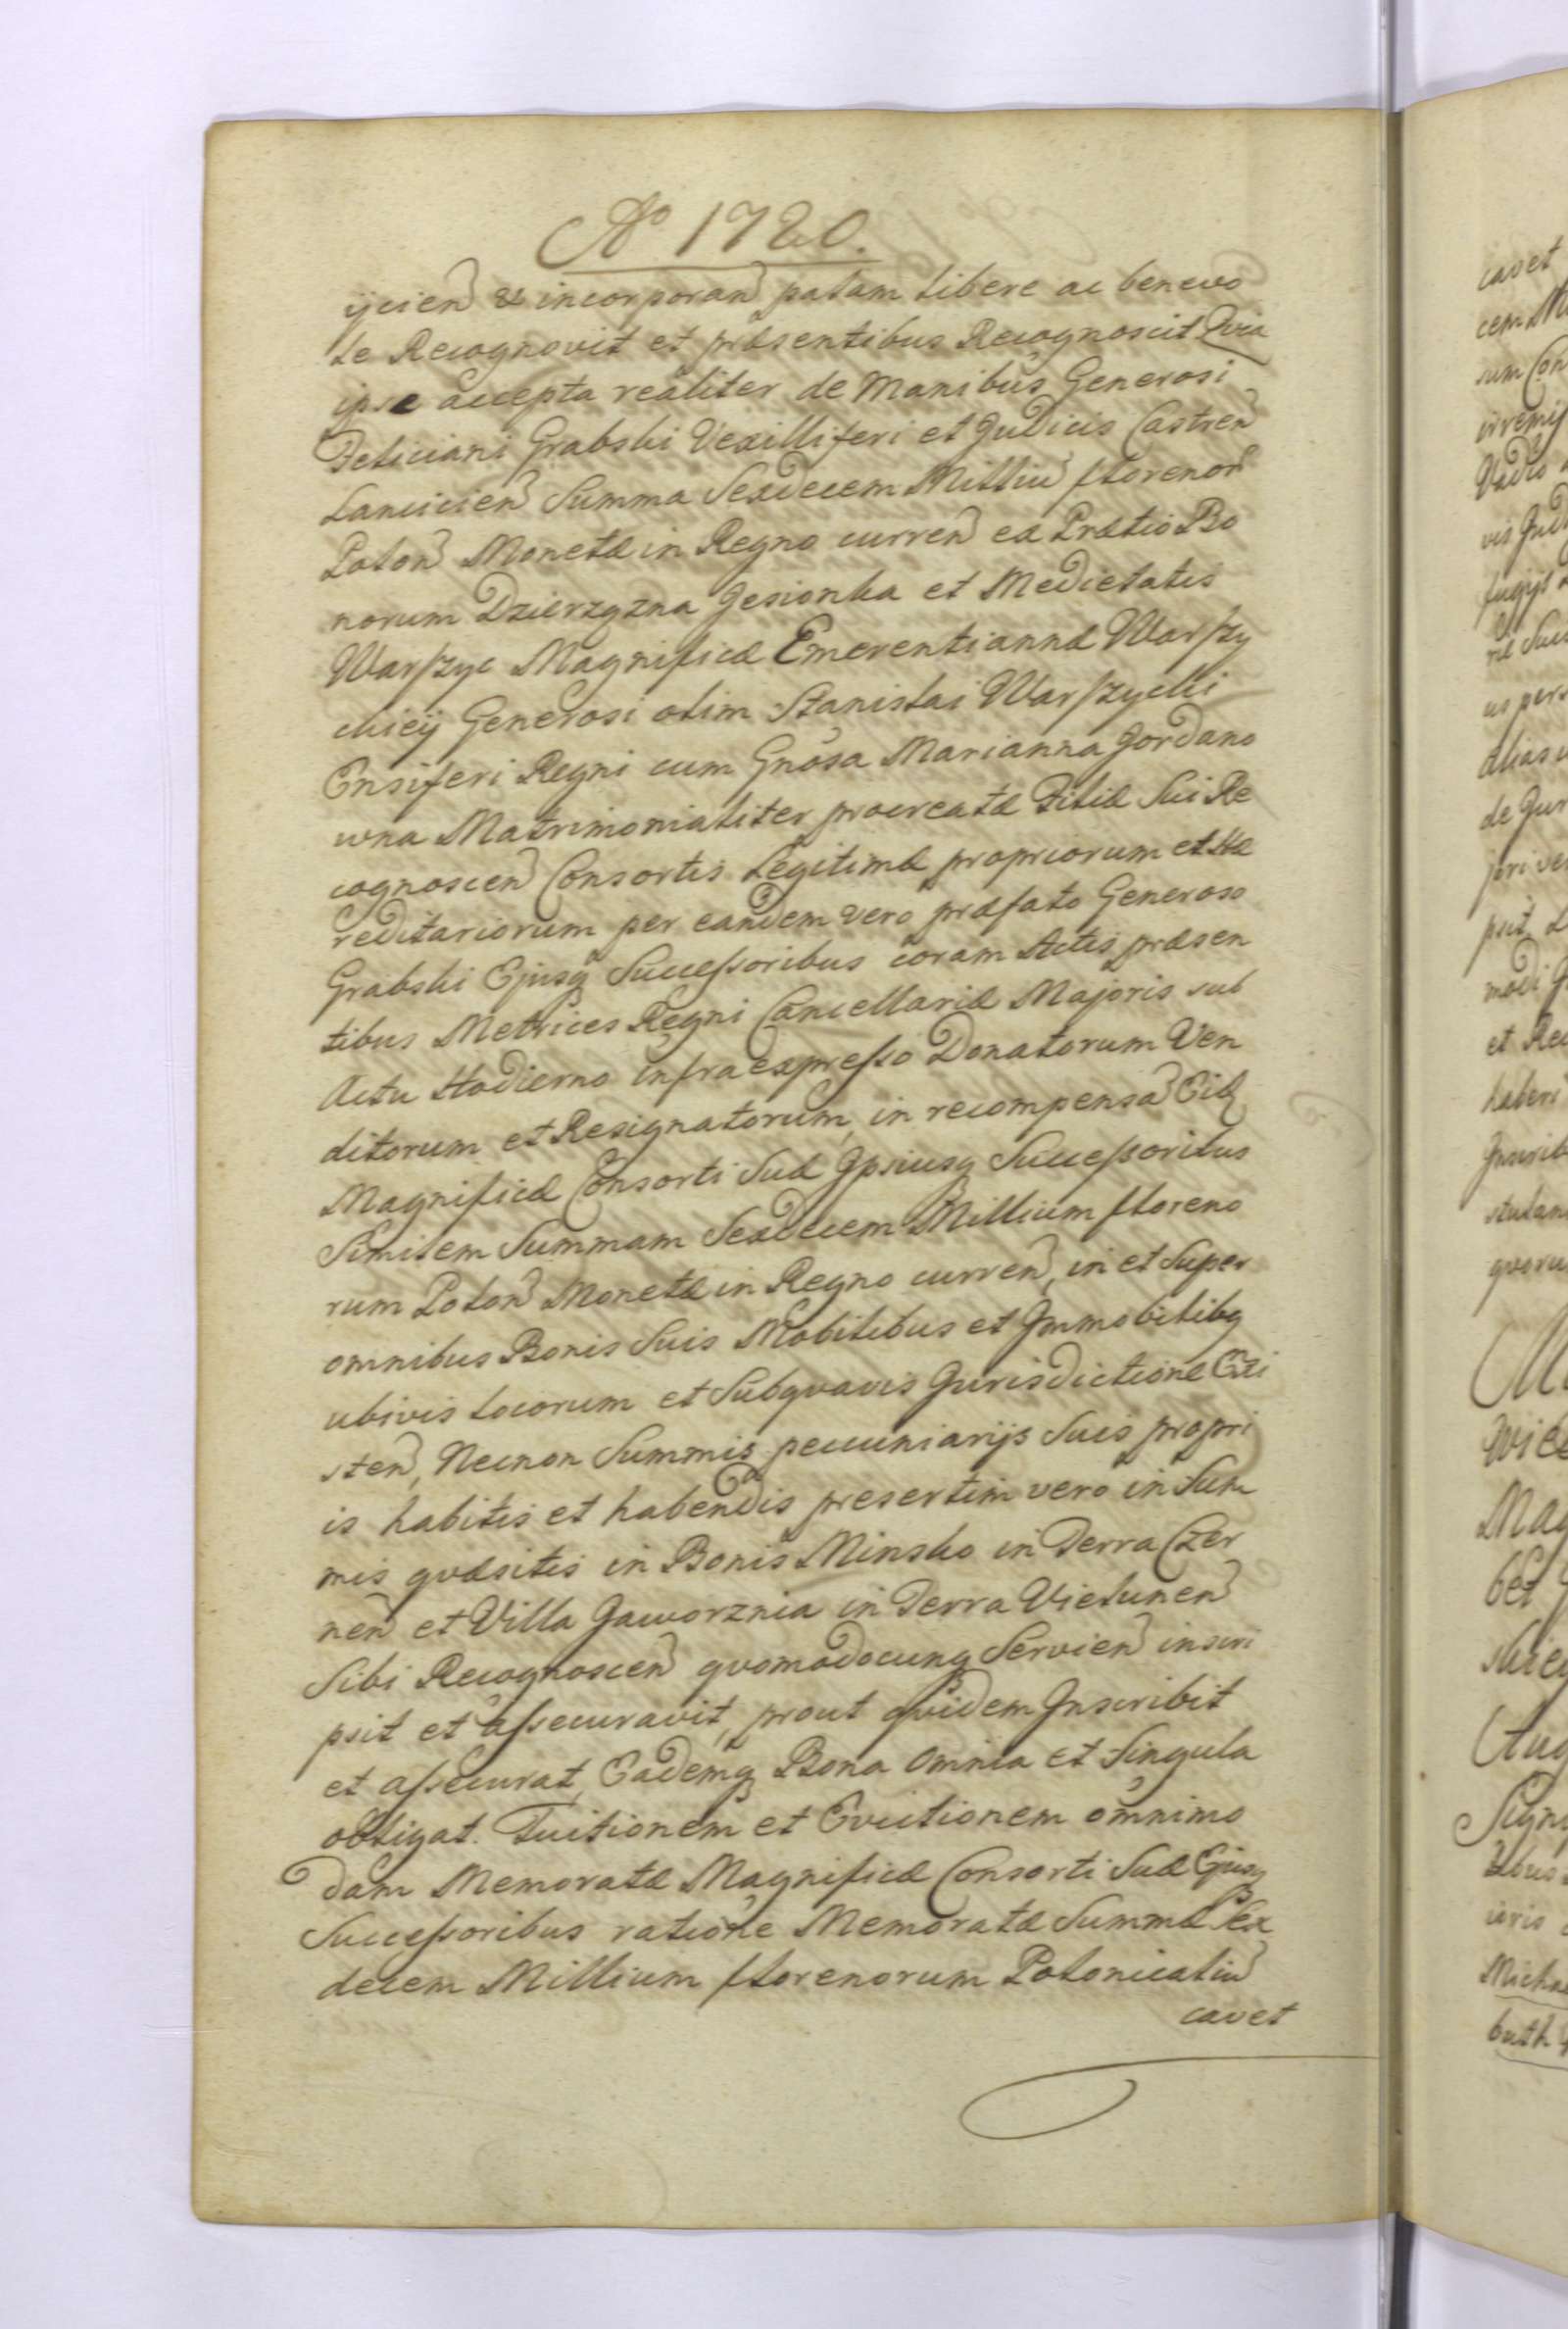 Ao 1720.
ijcien & incorporan palam libere ac benevo
le Recognovit et præsentibus Recognoscit Qvia
ipse accepta realiter de Manibus Generosi
Feliciani Grabski Vexilliferi et Judicis Castren
Lancicien Summa Sexdecem Milliu florenor
Polon Monetæ in Regno curren ex Prætio Bo
norum Dzierzązna Jesionka et Medietatis
Warszyc Magnificæ Emerentiannæ Warszy
ckiey Generosi olim Stanislai Warszycki
Ensiferi Regni cum Gnosa Marianna Jordano
wna Matrimonialiter procreatæ Filiæ Sui Re
cognoscen Consortis Legitimæ propriorum et Hæ
reditariorum per eandem vero præfato Generoso
Grabski Ejusq Successoribus coram Actis præsen
tibus Metrices Regni Cancellariæ Majoris sub
Actu Hodierno infraexpresso Donatorum Ven
ditorum et Resignatorum, in recompensa Eid
Magnificæ Consorti Suæ Ipsiusq Successoribus
Similem Summam Sexdecem Millium floreno
rum Polon Monetæ in Regno curren, in et Super
omnibus Bonis Suis Mobilibus et Immobilibq
ubivis locorum et Subqvavis Jurisdictione Exi
sten, Necnon Summis pecuniarijs Suis propri
is habitis et habendis presertim vero in Sum
mis qvæsitis in Bonis Minsko in Terra Czer
nen et Villa Jaworznia in Terra Vielunen
Sibi Recognoscen qvomodocunq Servien inscri
psit et assecuravit, prout qvidem Inscribit
et assecurat, Eademq Bona omnia et Singula
obligat. Tuitionem et Evictionem omnimo
dam Memoratæ Magnificæ Consorti Suæ Ejusq
Successoribus ratione Memoratæ Summæ Sex
decem Millium florenorum Polonicaliu
cavet